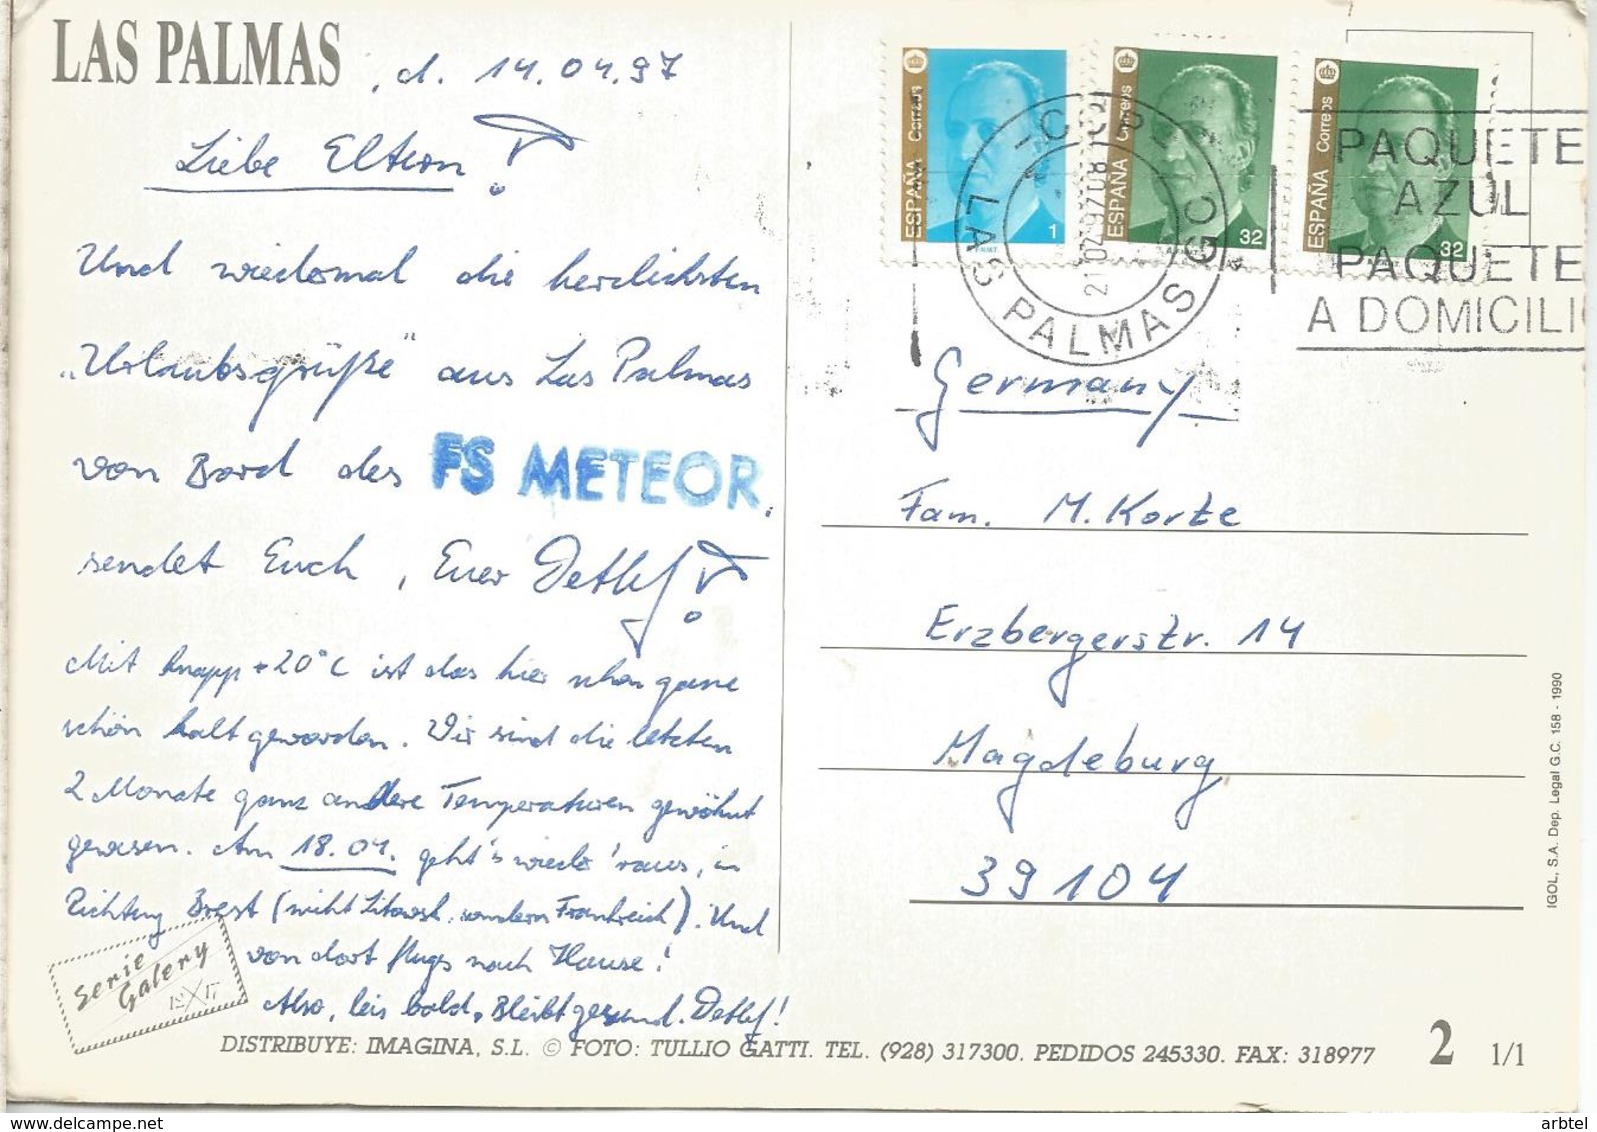 LAS PALMAS, d. 14.04.97
Liebe Eltern!
Und wiedermal die herzlichsten
„Urlaubsgrüße" aus Las Palmas
von Bord des FS METEOR.
sendet Euch, Euer Detlef!
Mit knapp +20°C ist das hier schon ganz
schön kalt geworden. Wir sind die letzten
2 Monate ganz andere Temperaturen gewöhnt
gewesen. Am 18.04. geht's wieder 'raus, in
Richtung Brest (nicht Litowsk, sondern Frankreich). Und
von dort flugs nach Hause!
Also, bis bald. Bleibt gesund. Detlef!
Serie
Galery
12X17
ESPAÑA Correos
1
F.N.M.T.
ESPAÑA Correos
32
ESPAÑA Correos
32
LAS PALMAS GC
PAQUETE
AZUL
PAQUETE
A DOMICILIO
Germany
Fam. M. Korte
Erzbergerstr. 14
Magdeburg
39104
IGOL, S.A. Dep. Legal G.C. 158 - 1990
DISTRIBUYE: IMAGINA, S.L. © FOTO: TULLIO GATTI. TEL. (928) 317300. PEDIDOS 245330. FAX: 318977
2 1/1
www.delcampe.net
arbtel